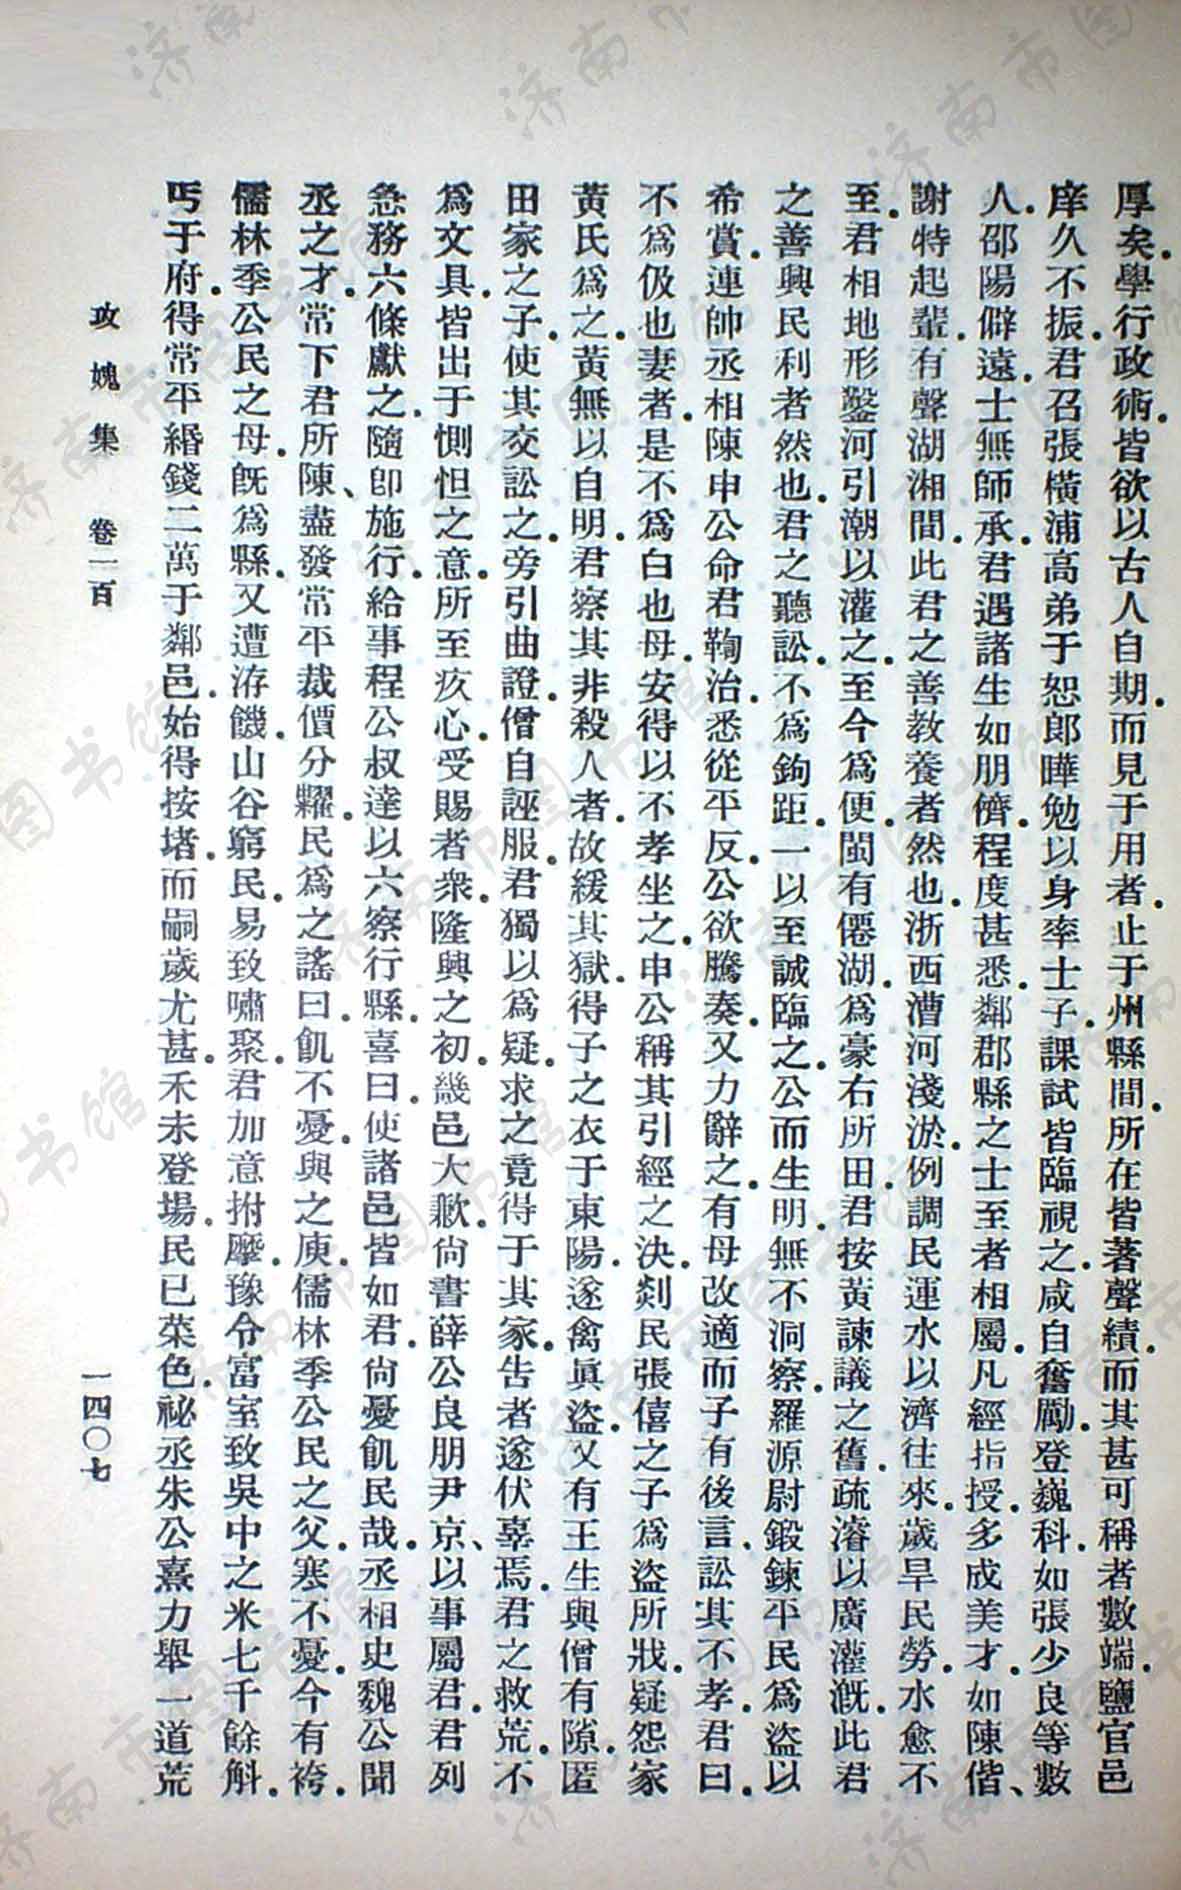 厚矣學行政術皆欲以古人自期而見于用者止于州縣間所在皆著聲績而其甚可稱者數端鹽官邑
庠久不振君召張橫浦高弟于恕郎曄勉以身率士子課試皆臨視之咸自奮勵登巍科如張少良等數
人邵陽僻遠士無師承君遇諸生如朋儕程度甚悉鄰郡縣之士至者相屬凡經指授多成美才如陳偕、
謝特起輩有聲湖湘間此君之善教養者然也浙西漕河淺淤例調民運水以濟往來歲旱民勞水愈不
至君相地形鑿河引潮以灌之至今為便閩有僊湖為豪右所田君按黃諫議之舊疏濬以廣灌溉此君
之善興民利者然也君之聽訟不為鉤距一以至誠臨之公而生明無不洞察羅源尉鍛鍊平民為盜以
希賞連帥丞相陳申公命君鞫治悉從平反公欲騰奏又力辭之有母改適而子有後言訟其不孝君曰
不為伋也妻者是不為白也母安得以不孝坐之申公稱其引經之決剡民張僖之子為盜所戕疑怨家
黃氏為之黃無以自明君察其非殺人者故緩其獄得子之衣于東陽遂禽眞盜又有王生與僧有隙匿
田家之子使其交訟之旁引曲證僧自誣服君獨以為疑求之竟得于其家告者遂伏辜焉君之救荒不
為文具皆出于惻怛之意所至疚心受賜者衆隆興之初畿邑大歉尙書薛公良朋尹京、以事屬君君列
急務六條獻之隨卽施行給事程公叔達以六察行縣喜曰使諸邑皆如君尙憂飢民哉丞相史魏公聞
丞之才常下君所陳、盡發常平裁價分糶民為之謠曰飢不憂與之庾儒林季公民之父寒不憂今有袴
儒林季公民之母旣為縣又遭洊饑山谷窮民易致嘯聚君加意拊摩豫令富室致吳中之米七千餘斛
丐于府得常平緡錢二萬于鄰邑始得按堵而嗣歲尤甚禾未登場民已菜色祕丞朱公熹力舉一道荒
攻媿集 卷一百 一四〇七